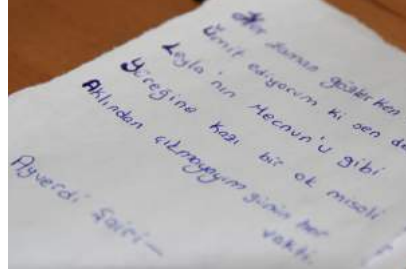 Her zaman gözlerken
Ümit ediyorum ki sen de
Leyla'nın Mecnun'u gibi
Yüreğine kazı bir ok misali
Aklından çıkmayayım günün her
vakti.
Ayverdi Şairi-